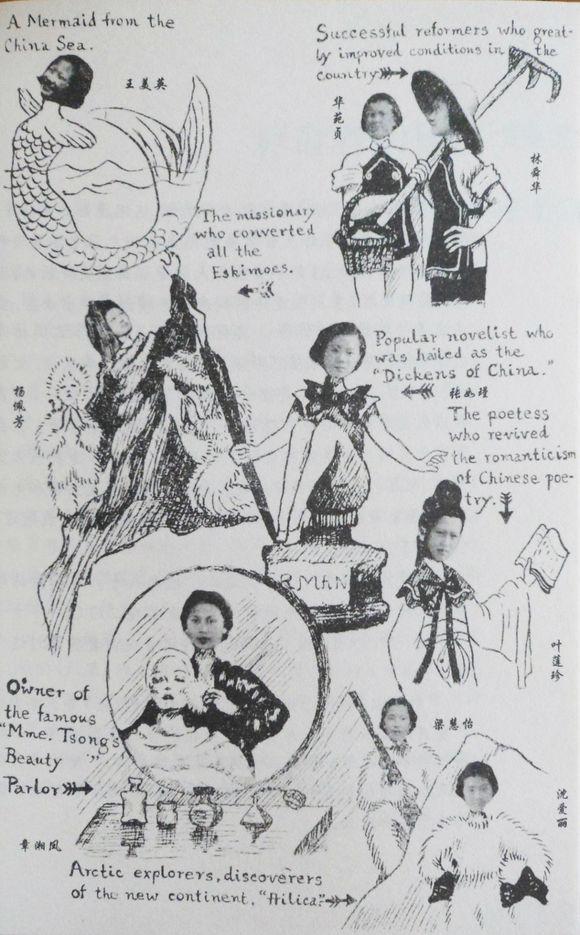 A Mermaid from the
China Sea.
王美英
Successful reformers who great-
ly improved conditions in the
country
华苑贞
林舜华
The missionary
who converted
all the
Eskimoes.
杨佩芳
Popular novelist who
was hailed as the
"Dickens of China."
The poetess
who revived
the romanticism
of Chinese poe-
try.
RMAN
叶莲珍
Owner of
the famous
"Mme. Tsong's
Beauty
Parlor"
章湘凤
梁慧怡
沈爱丽
Arctic explorers, discoverers
of the new continent, "Ailica."